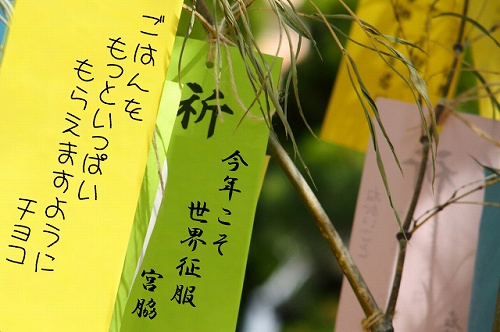 ごはんを
もっといっぱい
もらえますように
チヨコ
祈
今年こそ
世界征服
宮脇